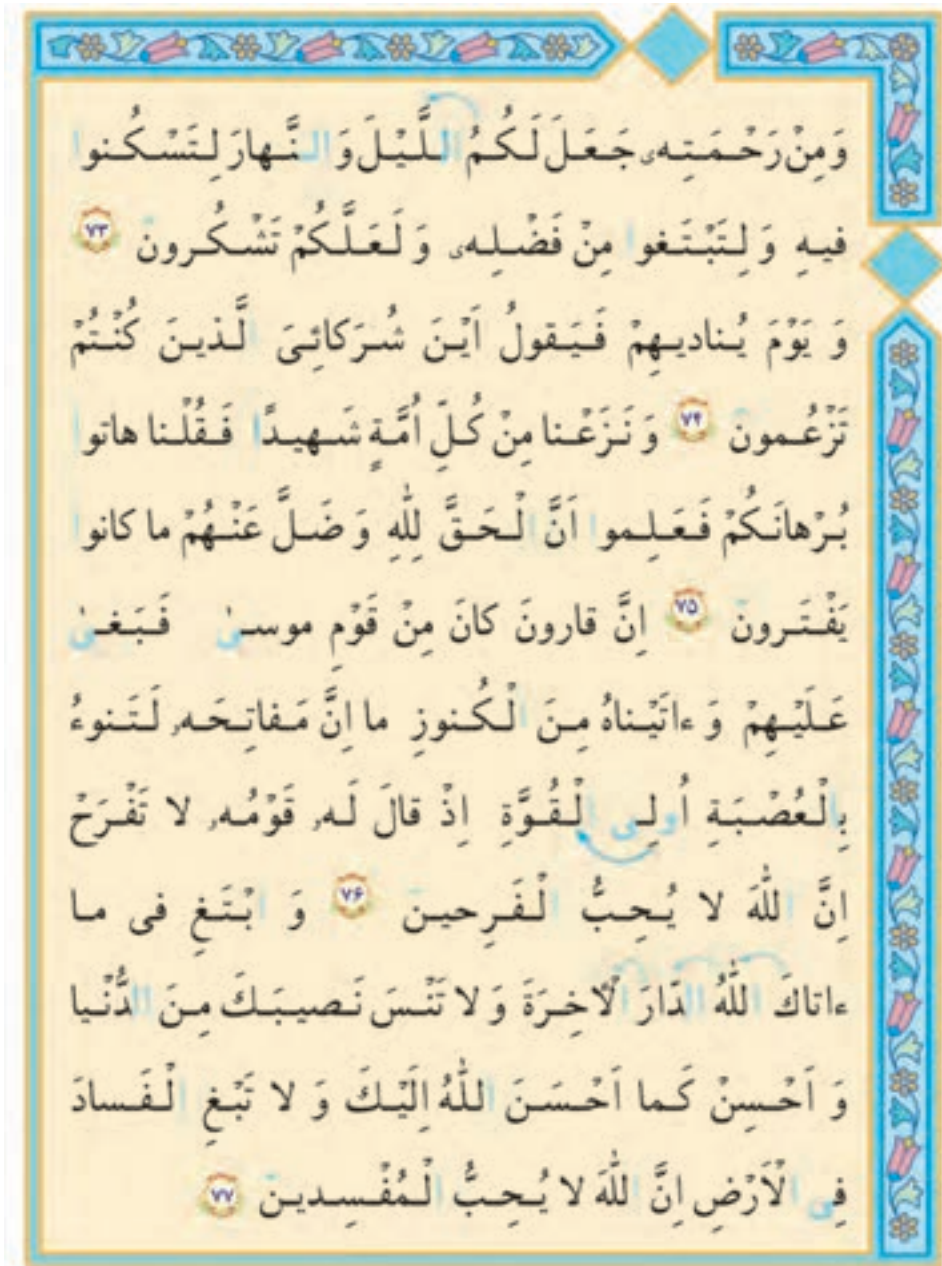 وَ مِنْ رَحْمَتِهٖ جَعَلَ لَكُمُ اللَّيْلَ وَ النَّهارَ لِتَسْكُنوا
فيهِ وَ لِتَبْتَغوا مِنْ فَضْلِهٖ وَ لَعَلَّكُمْ تَشْكُرونَ ۷۳
وَ يَوْمَ يُناديهِمْ فَيَقولُ اَيْنَ شُرَكائِیَ الَّذينَ كُنْتُمْ
تَزْعُمونَ ۷۴ وَ نَزَعْنا مِنْ كُلِّ اُمَّةٍ شَهيدًا فَقُلْنا هاتوا
بُرْهانَكُمْ فَعَلِموا اَنَّ الْحَقَّ لِلّٰهِ وَ ضَلَّ عَنْهُمْ ما كانوا
يَفْتَرونَ ۷۵ اِنَّ قارونَ كانَ مِنْ قَوْمِ موسىٰ فَبَغىٰ
عَلَيْهِمْ وَ ءاتَيْناهُ مِنَ الْكُنوزِ ما اِنَّ مَفاتِحَهٗ لَتَنوءُ
بِالْعُصْبَةِ اُولِی الْقُوَّةِ اِذْ قالَ لَهٗ قَوْمُهٗ لا تَفْرَحْ
اِنَّ اللّٰهَ لا يُحِبُّ الْفَرِحينَ ۷۶ وَ ابْتَغِ فی ما
ءاتاكَ اللّٰهُ الدّارَ الْاٰخِرَةَ وَ لا تَنْسَ نَصيبَكَ مِنَ الدُّنْيا
وَ اَحْسِنْ كَما اَحْسَنَ اللّٰهُ اِلَيْكَ وَ لا تَبْغِ الْفَسادَ
فِی الْاَرْضِ اِنَّ اللّٰهَ لا يُحِبُّ الْمُفْسِدينَ ۷۷